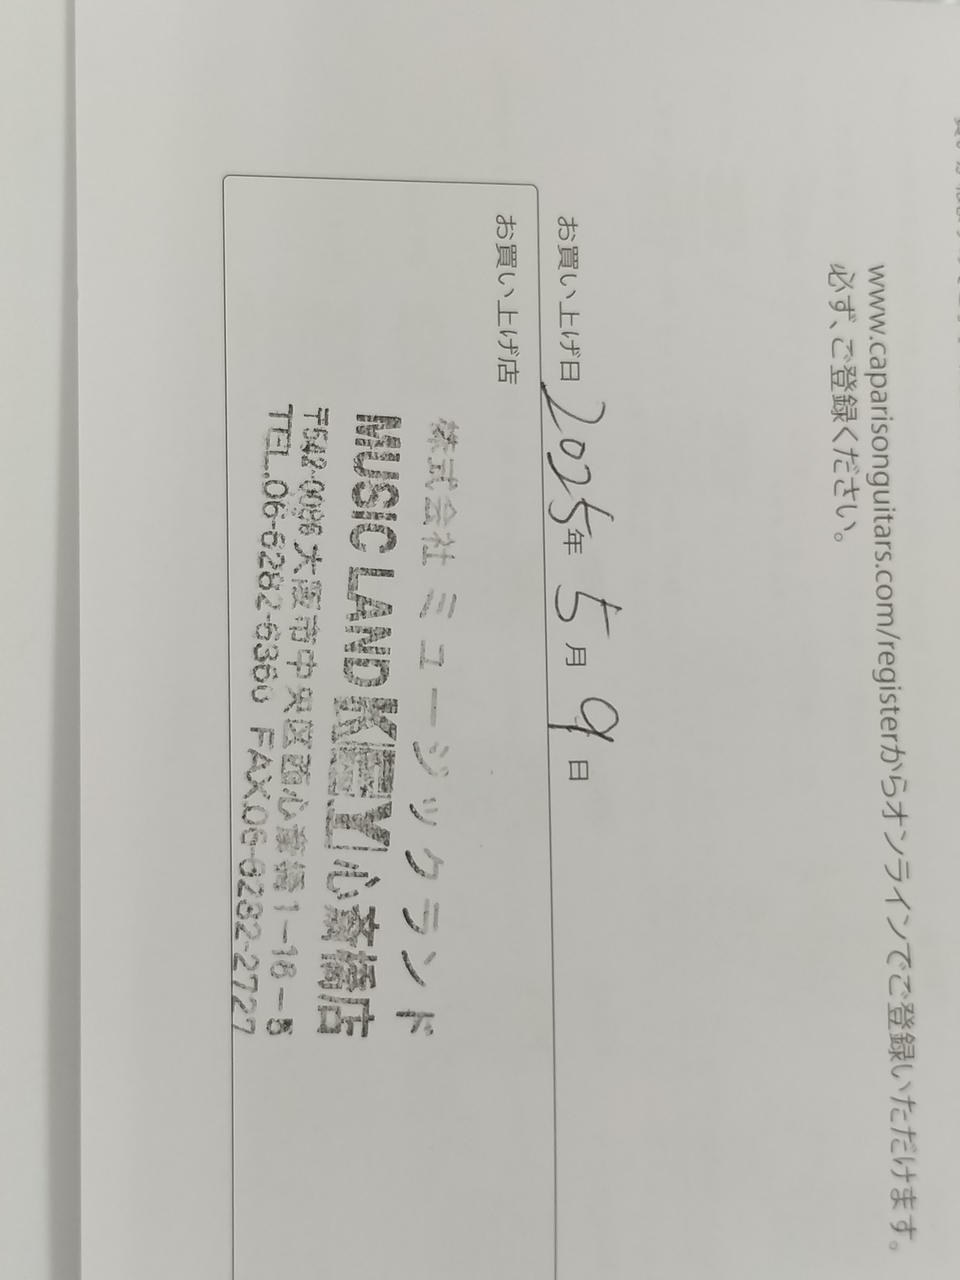 www.caparisonguitars.com/registerからオンラインでご登録いただけます。
必ず、ご登録ください。
お買い上げ日 2025年 5月 9日
お買い上げ店
株式会社 ミュージックランド
MUSIC LAND KEY 心斎橋店
〒542-0086 大阪市中央区西心斎橋1-16-5
TEL.06-6282-6360 FAX.06-6282-2727